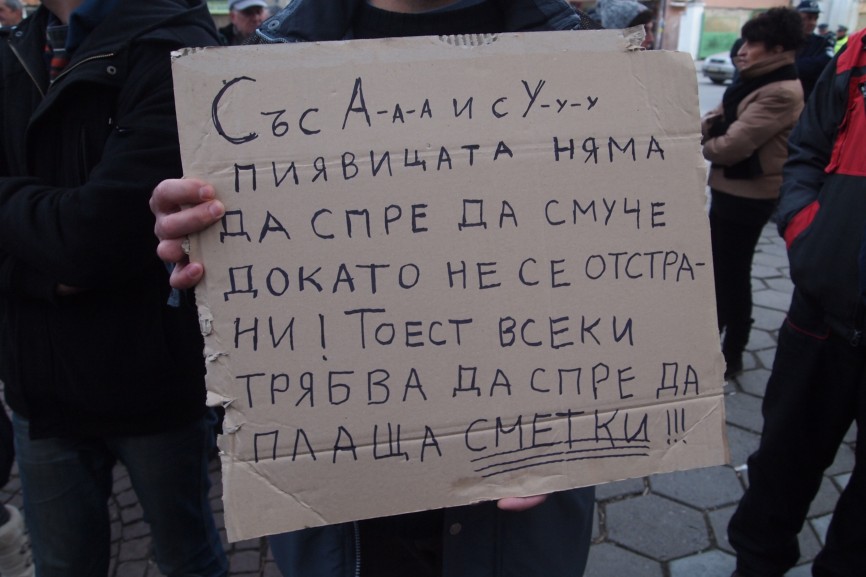 Със А-а-а и с У-у-у
пиявицата няма
да спре да смуче
докато не се отстра-
ни! Тоест всеки
трябва да спре да
плаща сметки!!!